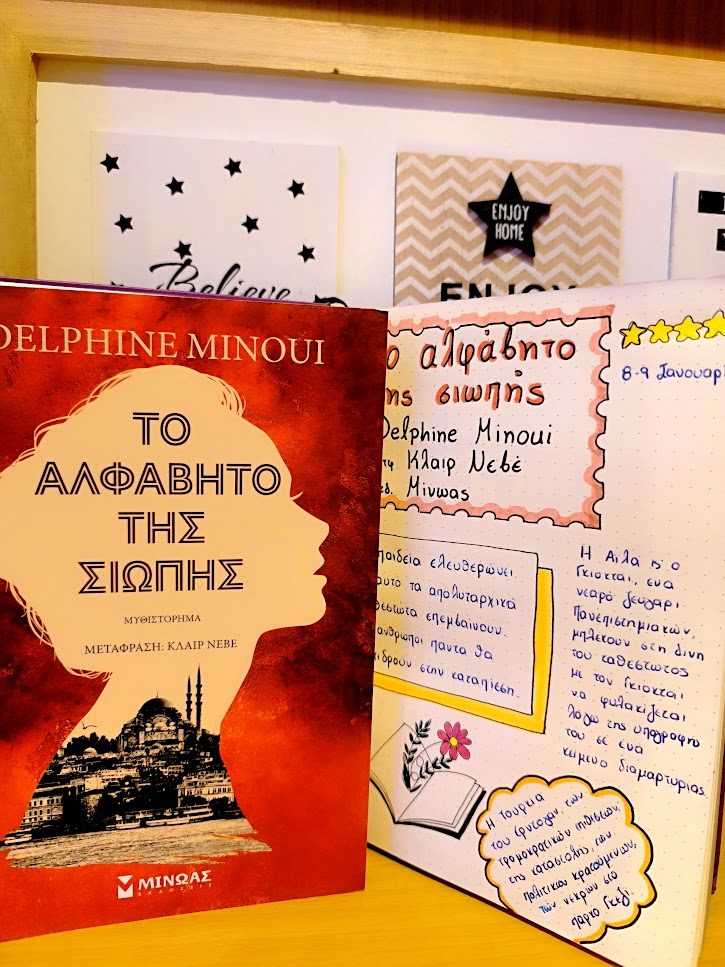 Believe
ENJOY
HOME
ENJOY
DELPHINE MINOUI
ΤΟ
ΑΛΦΑΒΗΤΟ
ΤΗΣ
ΣΙΩΠΗΣ
ΜΥΘΙΣΤΟΡΗΜΑ
ΜΕΤΑΦΡΑΣΗ: ΚΛΑΙΡ ΝΕΒΕ
ΜΙΝΩΑΣ
ΕΚΔΟΣΕΙΣ
ο αλφάβητο
της σιωπής
Delphine Minoui
Κλαιρ Νεβέ
εκδ. Μίνωας
8-9 Ιανουαρί
παιδεία ελευθερώνει.
αυτο τα απολυταρχικά
θεστώτα επεμβαίνουν.
άνθρωποι πάντα θα
ιδρούν στην καταπίεση.
Η Αϊλά κ ο
Γκιοκτάι, ένα
νεαρό ζευγάρι
Πανεπιστημιακών,
μπλέκουν στη δίνη
του καθεστώτος
με τον Γκιοκτάι
να φυλακίζεται
λόγω της υπογραφής
του σε ένα
κείμενο διαμαρτυρίας.
Η Τουρκία
του Ερντογάν, των
τρομοκρατικών επιθέσεων,
της καταστολής, των
πολιτικών κρατούμενων,
των νεκρών στο
πάρκο Γκεζί.